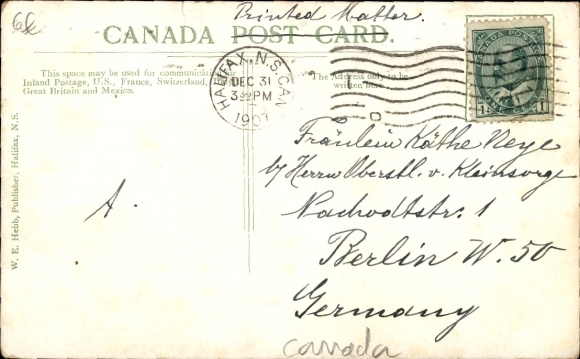 6
Printed Matter.
CANADA POST CARD.
This space may be used for communication for
Inland Postage, U.S., France, Switzerland,
Great Britain and Mexico.
The Address only to be
written here.
HALIFAX, N.S. CAN.
DEC 31
PM
1907
CANADA POSTAGE
1 1
W. E. Hebb, Publisher, Halifax, N.S.
A.
Fräulein Käthe Neye
b/ Herrn Oberstl. v. Kleinsorge
Nachodstr. 1
Berlin W. 50
Germany
canada